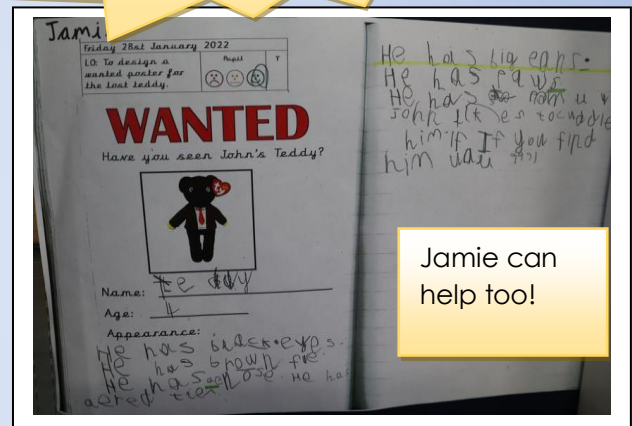 Jami
Friday 28st January 2022
LO: To design a
wanted poster for
the lost teddy.
Pupil
T
WANTED
Have you seen John's Teddy?
Name: Teddy
Age: 4
Appearance:
He has black eyes.
He has brown
He has nose. He has
a ered
He has big ears.
He has paws
He has
John to cuddle
him. If If you find
him
Jamie can
help too!